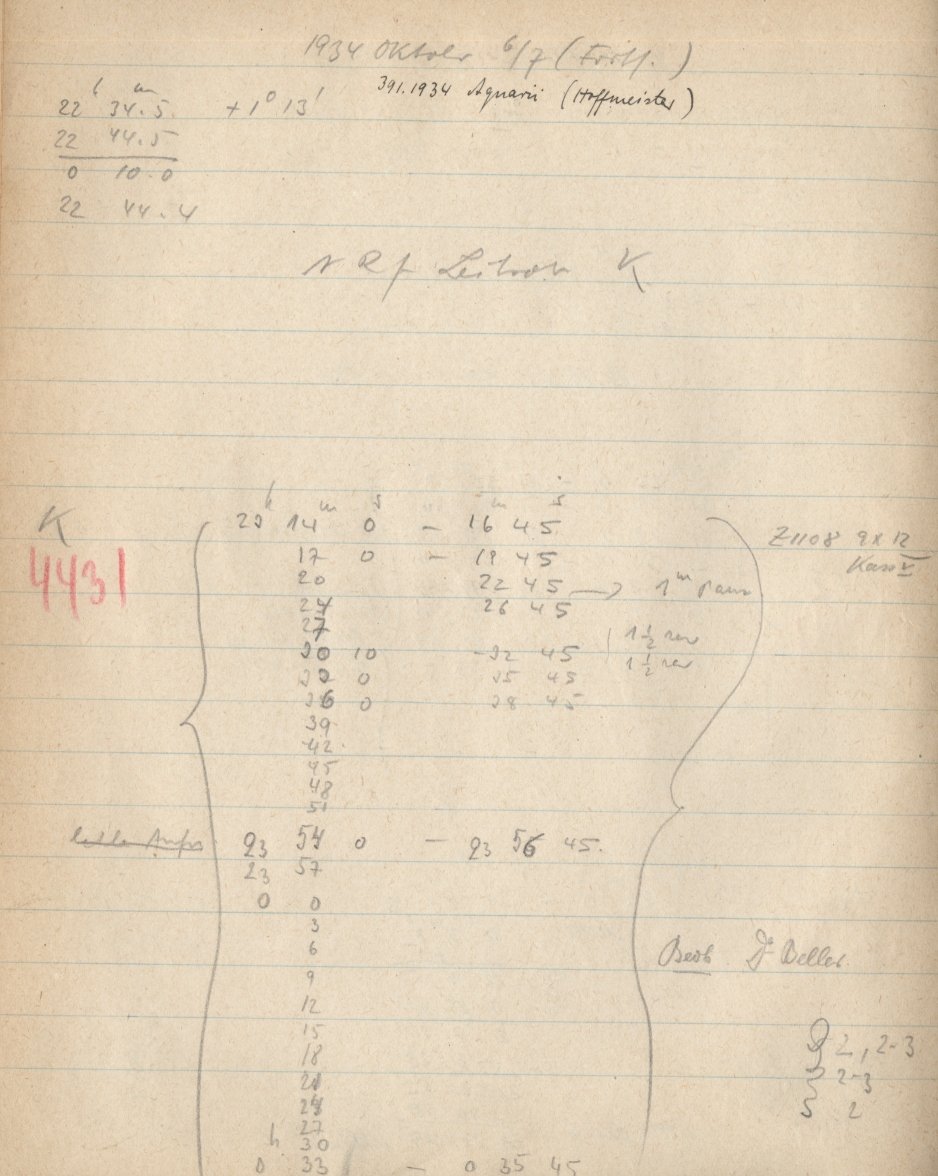 1934 Oktober 6/7 (Forts.)
391.1934 Aquarii (Hoffmeister)
h m
22 34.5 +1° 13'
22 44.5
0 10.0
22 44.4
K
h m s m s
23 14 0 – 16 45
Z1108 9x12
Kass V
17 0 – 19 45
4431
20 22 45 1m Paus
24 26 45
27
30 10 – 32 45
33 0 35 45
36 0 38 45
39
42
45
48
51
23 54 0 – 23 56 45.
23 57
0 0
3
6
Beob Dr Beller
9
12
15
18
2, 2-3
21
2-3
24
5 2
27
h 30
0 33 – 0 35 45